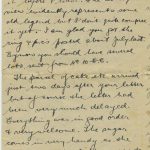 view evidently represents some
old legend, but I don't
it yet. I am glad you got the
ring & pics posted about July last.
you should have several
lots, sent from
The parcel of cake etc arrived
just two days after your letter
but of course the letter had
been very much delayed.
Everything was in good order
& very welcome. The sugar
comes in very handy as the